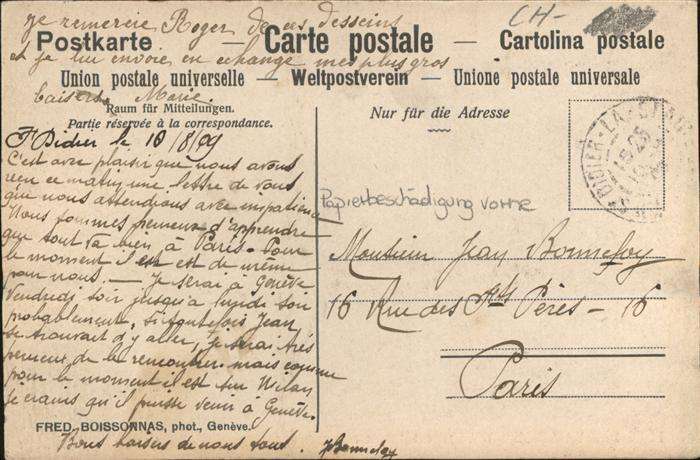 je remercie Roger de ces dessins
CH-
Postkarte — Carte postale — Cartolina postale
et je lui envoie en échange mes plus gros
Union postale universelle — Weltpostverein — Unione postale universale
baisers. Marie.
Raum für Mitteilungen.
Nur für die Adresse
Partie réservée à la correspondance.
St Didier le 10/8/09
C'est avec plaisir que nous avons
reçu ce matin une lettre de vous
que nous attendions avec impatience
Nous sommes heureux d'apprendre
que tout va bien à Paris. Pour
le moment il en est de même
pour nous. — Je serai à Genève
Vendredi soir jusqu'à lundi soir
probablement. Si toutefois Jean
se trouvait d'y aller, je serai très
heureux de le rencontrer. mais comme
pour le moment il est sur
je crains qu'il puisse venir à Genève.
FRED. BOISSONNAS, phot., Genève.
Bons baisers de nous tous. JBonnefoy
Papierbeschädigung vorne
Monsieur Jean Bonnefoy
16 Rue des Sts Pères - 16
Paris
DIDIER-LA-